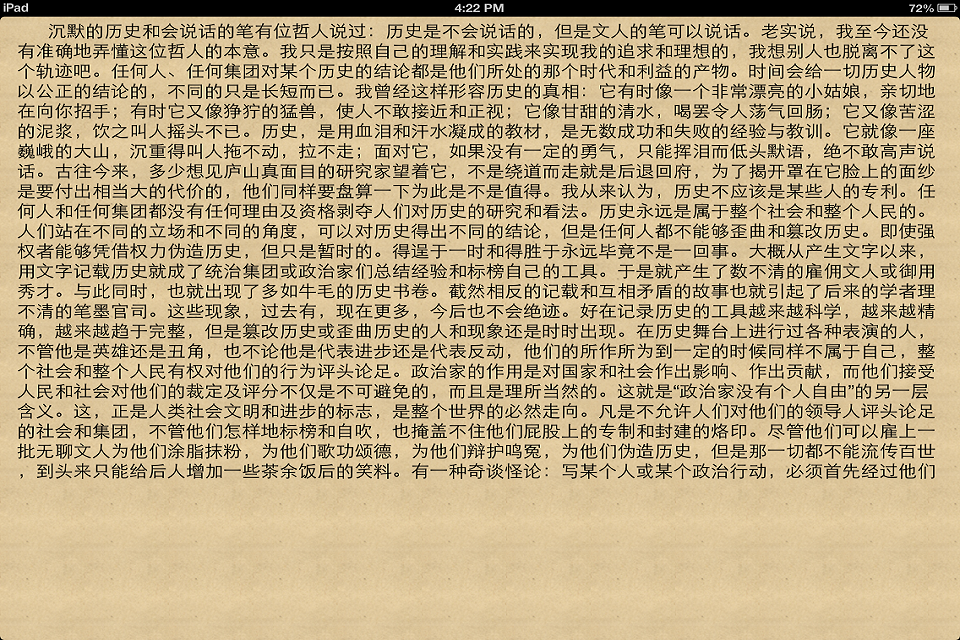 iPad 4:22 PM 72%
沉默的历史和会说话的笔有位哲人说过：历史是不会说话的，但是文人的笔可以说话。老实说，我至今还没
有准确地弄懂这位哲人的本意。我只是按照自己的理解和实践来实现我的追求和理想的，我想别人也脱离不了这
个轨迹吧。任何人、任何集团对某个历史的结论都是他们所处的那个时代和利益的产物。时间会给一切历史人物
以公正的结论的，不同的只是长短而已。我曾经这样形容历史的真相：它有时像一个非常漂亮的小姑娘，亲切地
在向你招手；有时它又像狰狞的猛兽，使人不敢接近和正视；它像甘甜的清水，喝罢令人荡气回肠；它又像苦涩
的泥浆，饮之叫人摇头不已。历史，是用血泪和汗水凝成的教材，是无数成功和失败的经验与教训。它就像一座
巍峨的大山，沉重得叫人拖不动，拉不走；面对它，如果没有一定的勇气，只能挥泪而低头默语，绝不敢高声说
话。古往今来，多少想见庐山真面目的研究家望着它，不是绕道而走就是后退回府，为了揭开罩在它脸上的面纱
是要付出相当大的代价的，他们同样要盘算一下为此是不是值得。我从来认为，历史不应该是某些人的专利。任
何人和任何集团都没有任何理由及资格剥夺人们对历史的研究和看法。历史永远是属于整个社会和整个人民的。
人们站在不同的立场和不同的角度，可以对历史得出不同的结论，但是任何人都不能够歪曲和篡改历史。即使强
权者能够凭借权力伪造历史，但只是暂时的。得逞于一时和得胜于永远毕竟不是一回事。大概从产生文字以来，
用文字记载历史就成了统治集团或政治家们总结经验和标榜自己的工具。于是就产生了数不清的雇佣文人或御用
秀才。与此同时，也就出现了多如牛毛的历史书卷。截然相反的记载和互相矛盾的故事也就引起了后来的学者理
不清的笔墨官司。这些现象，过去有，现在更多，今后也不会绝迹。好在记录历史的工具越来越科学，越来越精
确，越来越趋于完整，但是篡改历史或歪曲历史的人和现象还是时时出现。在历史舞台上进行过各种表演的人，
不管他是英雄还是丑角，也不论他是代表进步还是代表反动，他们的所作所为到一定的时候同样不属于自己，整
个社会和整个人民有权对他们的行为评头论足。政治家的作用是对国家和社会作出影响、作出贡献，而他们接受
人民和社会对他们的裁定及评分不仅是不可避免的，而且是理所当然的。这就是“政治家没有个人自由”的另一层
含义。这，正是人类社会文明和进步的标志，是整个世界的必然走向。凡是不允许人们对他们的领导人评头论足
的社会和集团，不管他们怎样地标榜和自吹，也掩盖不住他们屁股上的专制和封建的烙印。尽管他们可以雇上一
批无聊文人为他们涂脂抹粉，为他们歌功颂德，为他们辩护鸣冤，为他们伪造历史，但是那一切都不能流传百世
，到头来只能给后人增加一些茶余饭后的笑料。有一种奇谈怪论：写某个人或某个政治行动，必须首先经过他们